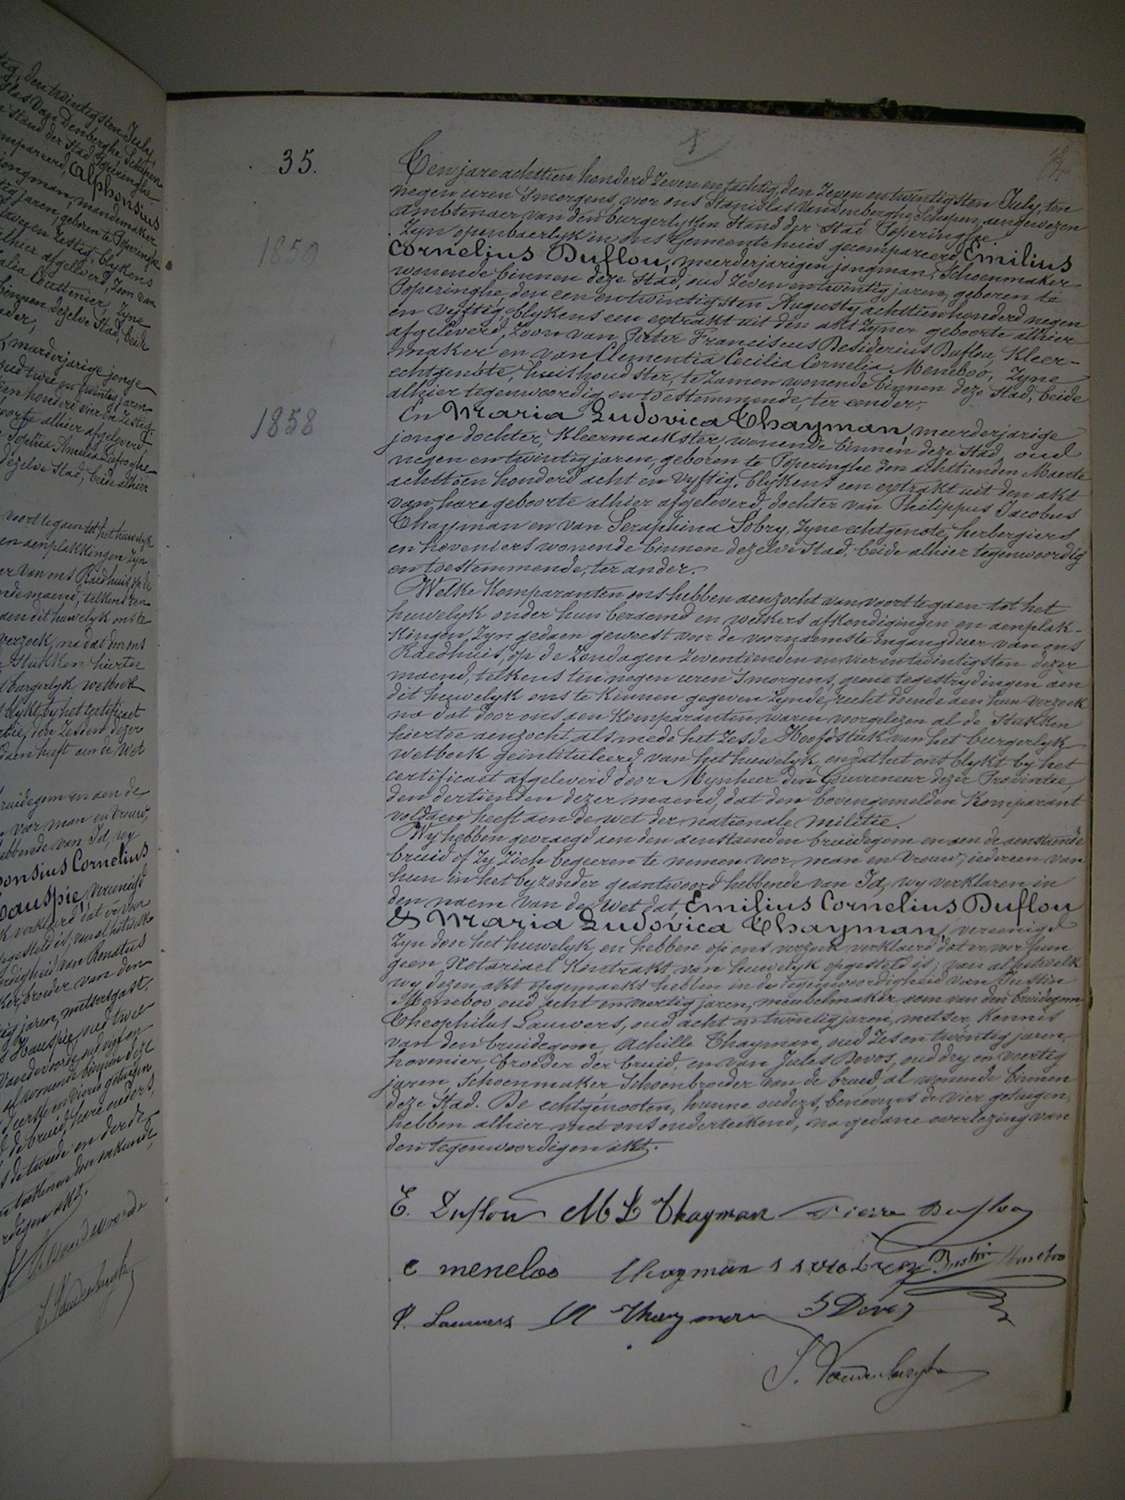 35.
1859
1858
Ten jare achttien honderd zeven en tachtig, den zeven en twintigsten July, ten
negen uren 's morgens, voor ons Stanislas Vandenberghe, Schepen, aengewezen
ambtenaer van den burgerlyken Stand der Stad Poperinghe
Zyn openbaerlyk in ons Gemeentehuis gecompareerd, Emilius
Cornelius Duflou, meerderjarigen jongman, Schoenmaker
wonende binnen deze Stad, oud zeven en twintig jaren, geboren te
Poperinghe, den een en twintigsten Augusty achttien honderd negen
en vyftig, blykens een extrakt uit den akt zyner geboorte alhier
afgeleverd, zoon van Pieter Franciscus Desiderius Duflou, Kleer-
maker en van Clementia Cecilia Cornelia Meneboo, Zyne
echtgenote, huishoudster, te zamen wonende binnen deze Stad, beide
alhier tegenwoordig en toestemmende, ter eender.
En Maria Ludovica Thayman, meerderjarige
jonge dochter, Kleermaekster, wonende binnen deze Stad, oud
negen en twintig jaren, geboren te Poperinghe den achttienden Maerte
achttien honderd acht en vyftig, blykens een extrakt uit den akt
van hare geboorte alhier afgeleverd, dochter van Philippus Jacobus
Thayman en van Seraphina Sobry, Zyne echtgenote, herbergiers
en hoveniers wonende binnen dezelve Stad, beide alhier tegenwoordig
en toestemmende, ter ander.
Welke Komparanten ons hebben aenzocht van voort te gaen tot het
huwelyk onder hun beraemd en welkers afkondigingen en aenplak-
kingen zyn gedaen geweest voor de voornaemste ingangdeur van ons
Raedhuis, op de Zondagen zeventienden en vier en twintigsten dezer
maend, telkens ten negen uren 's morgens, geene tegenstrydingen aen
dit huwelyk ons te kennen gegeven zynde, recht doende aen hun verzoek
na dat door ons aen Komparanten waren voorgelezen al de Stukken
hiertoe aenzocht alsmede het Zesde Hoofdstuk van het burgerlyk
wetboek geïntituleerd van het huwelyk, en dat het ons blykt by het
certificaet afgeleverd door Mynheer den Gouverneur dezer Provincie,
den dertienden dezer maend, dat den bovengemelden Komparant
voldaen heeft aen de wet der nationale militie.
Wy hebben gevraegd aen den aenstaenden bruidegom en aen de aenstaende
bruid of zy zich begeeren te nemen voor man en vrouw, iedereen van
hun in het byzonder geantwoord hebbende van Ja, wy verklaren in
den naem van de Wet dat, Emilius Cornelius Duflou
& Maria Ludovica Thayman, vereenigd
zyn door het huwelyk, en hebben op ons verzoek verklaerd dat er voor hun
geen Notariael Kontrakt van huwelyk opgesteld is; van al hetwelk
wy dezen akt opgemaekt hebben in de tegenwoordigheid van Justin
Meneboo, oud acht en veertig jaren, meubelmaker, oom van den bruidegom
Theophilus Lauwers, oud acht en twintig jaren, metser, Kennis
van den bruidegom, Achille Thayman, oud Zes en twintig jaren,
hovenier, broeder der bruid, en van Jules Devos, oud dry en veertig
jaren, Schoenmaker, Schoonbroeder van de bruid, al wonende binnen
deze Stad. De echtgenooten, hunne ouders, benevens de vier getuigen,
hebben alhier met ons onderteekend, na gedane overlezing van
den tegenwoordigen akt.
E. Duflou M L Thayman Pierre Duflou
c meneboo Thayman Justin Meneboo
Lauwers A Thayman J Devos
S. Vandenberghe